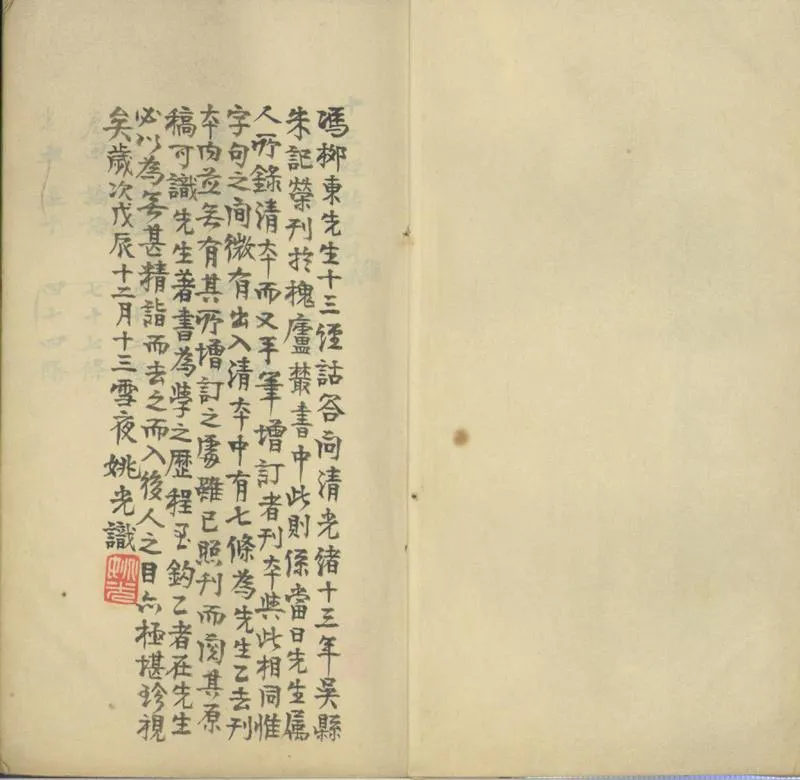 馮桺東先生十三經詁答问清光緒十三年吴縣
朱記榮刊於槐廬叢書中此則係當日先生属
人所錄清夲而又手筆增訂者刊夲與此相同惟
字句之间微有出入清夲中有七條為先生乙去刊
夲内並无有其所增訂之處雖已照刊而阅其原
稿可識先生著書為學之歷程至鈎乙者在先生
必以為无甚精詣而去之而入後人之目亦極堪珍視
矣歲次戊辰十二月十三雪夜姚光識
姚光